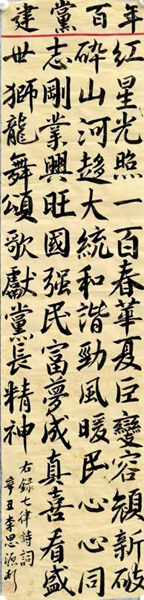 建黨百年
紅星光照一百春華夏巨變容顏新破
碎山河趨大統和諧勁風暖民心心同
志剛業興旺國强民富夢成真喜看盛
世獅龍舞頌歌獻黨長精神
右録七律詩詞
辛丑李思源